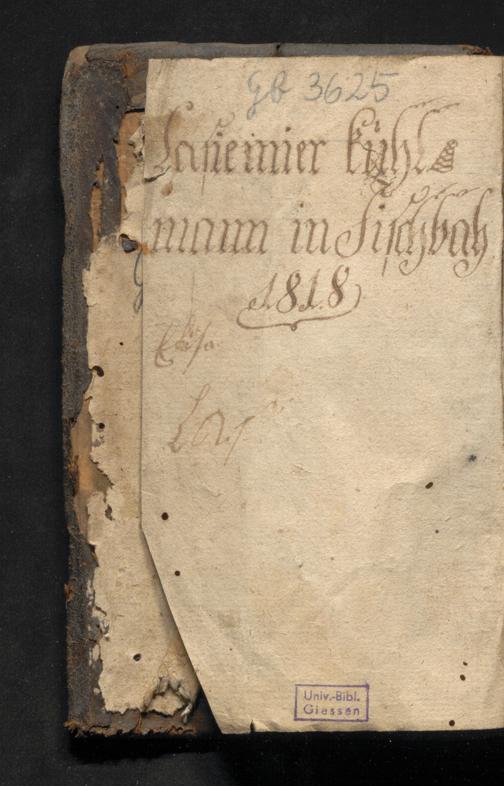 Gb 3625
Casiemier Kühl=
mann in Fischbah
1818
Univ.-Bibl.
Giessen